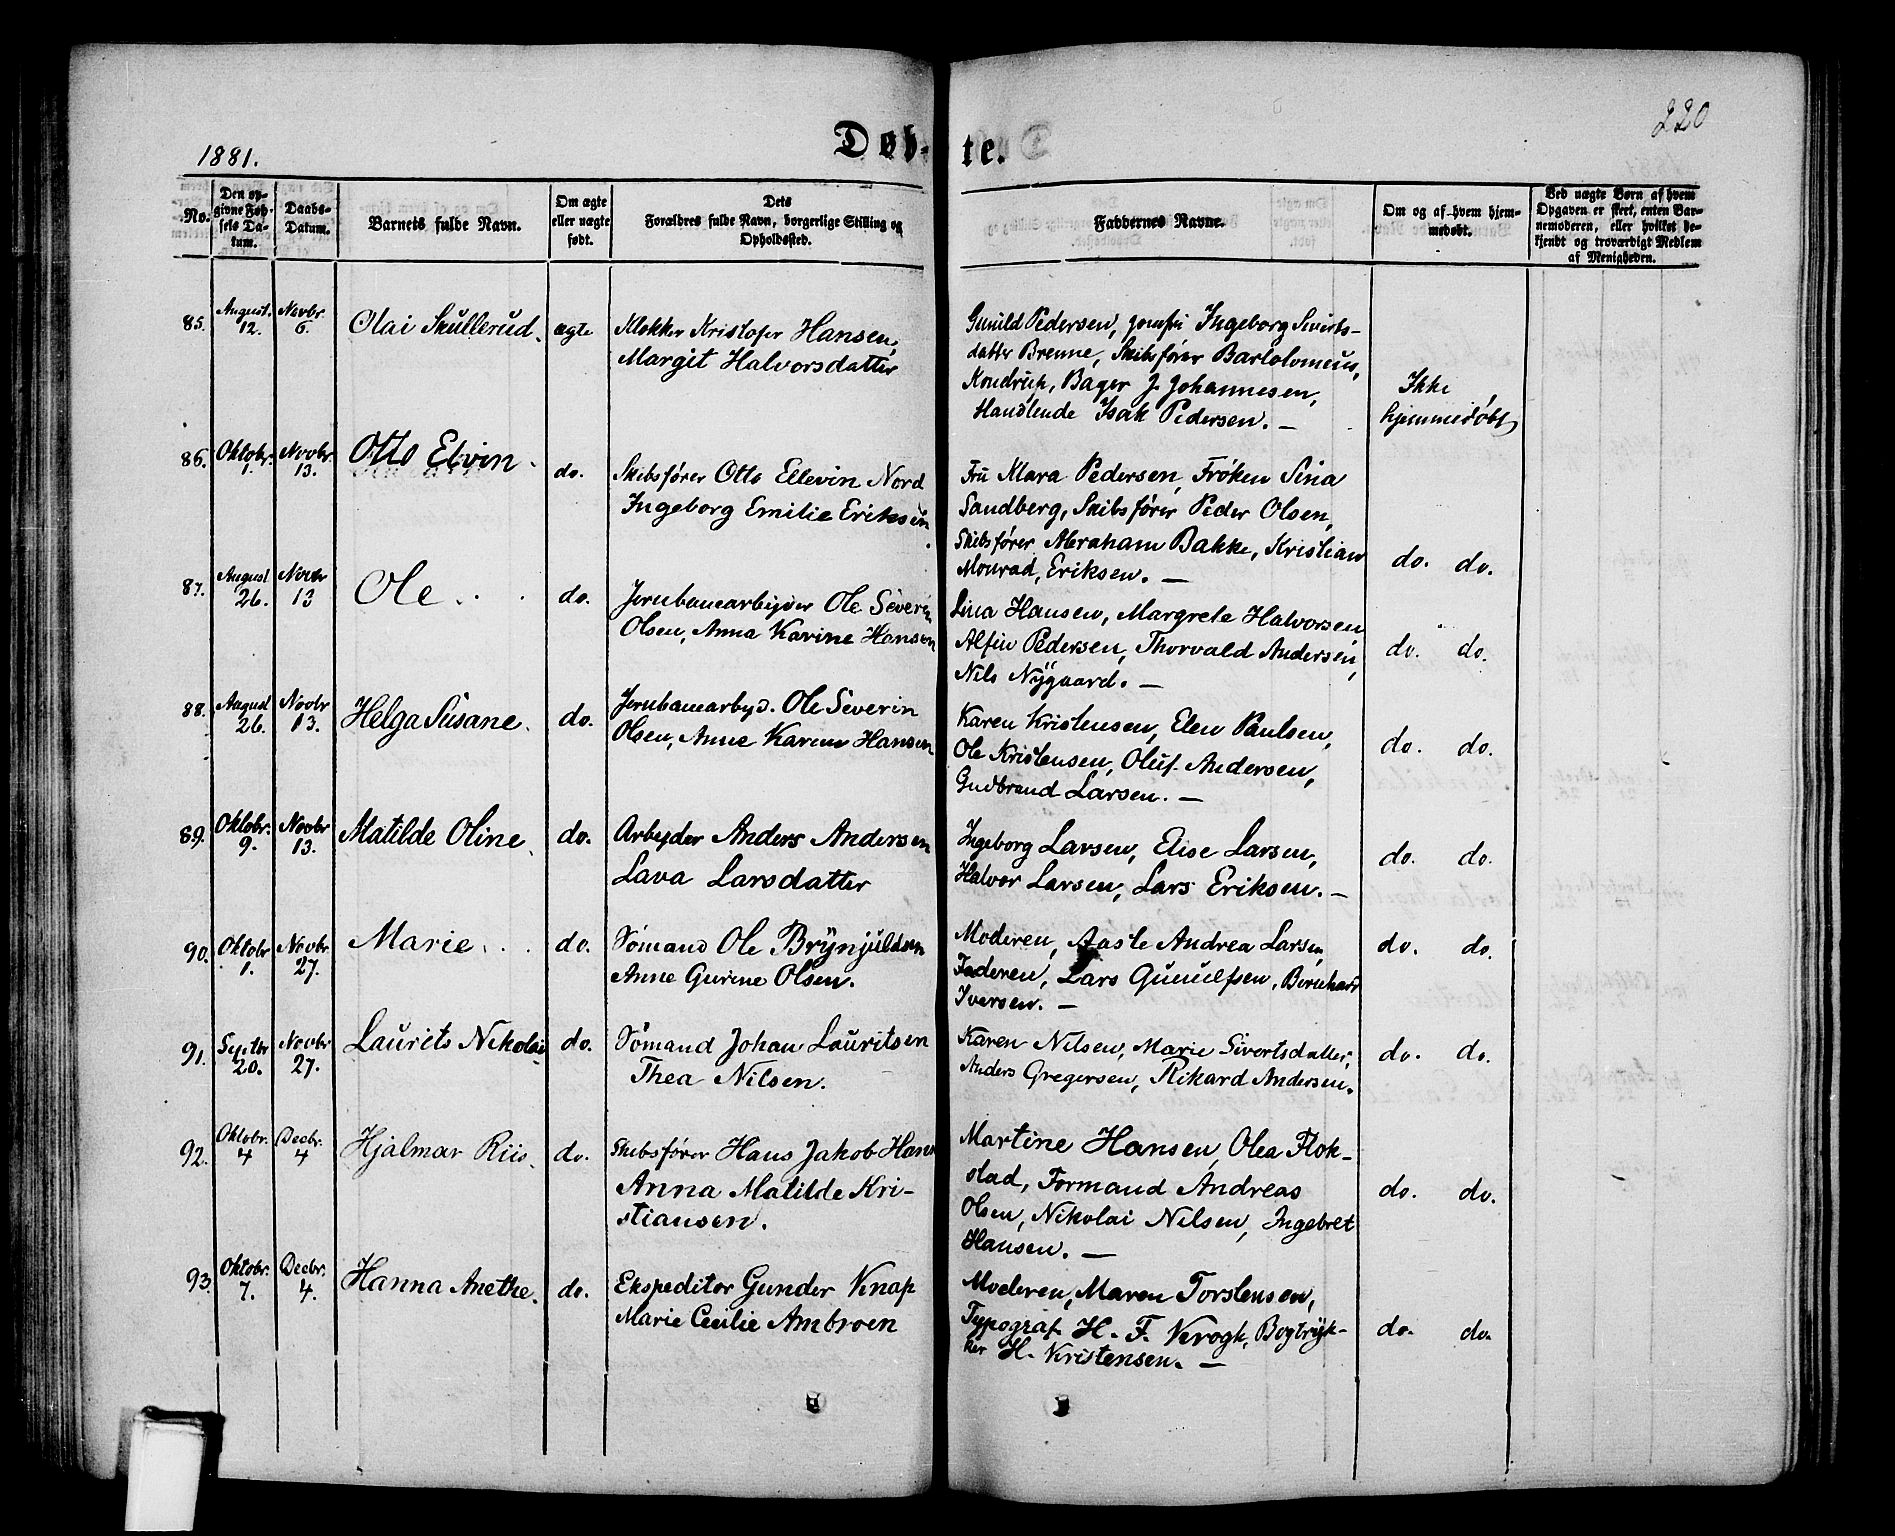 220
1881.
Døb-
te.
No.
Den op-
givne Fød-
sels Da-
tum.
Daabs-
Datum.
Barnets fulde Navn.
Om ægte
eller uægte
født.
Dets
Forældres fulde Navn, borgerlige Stilling og
Opholdssted.
Faddernes Navne.
Om og af hvem hjem-
medøbt.
Ved uægte Børn af hvem
Opgaven er skeet, enten Bar-
nemoderen, eller hvilket be-
kjendt og troværdigt Medlem
af Menigheden.
85.
August.
12.
Novbr.
6.
Olai Skullerud.
ægte
Klokker Kristofer Hansen,
Margit Halvorsdatter
Gunild Pedersen, Ingeborg Sivirts-
datter Brenne, Skibsfører Bartolomeus,
Kondrup, Bager J. Johannesen,
Handlende Isak Pedersen. —
Ikke
hjemmedøbt
86.
Oktobr.
1.
Novbr.
13.
Otto Elvin.
do.
Skibsfører Otto Ellevin Nord
Ingeborg Emilie Eriksen
Fru Klara Pedersen, Frøken Sina
Sandberg, Skibsfører Peder Olsen,
Skibsfører Abraham Bakke, Kristian
Monrad, Eriksen. —
do. do.
87.
August
26.
Novbr
13
Ole.
do.
Jernbanearbejder Ole Severin
Olsen, Anna Karine Hansen
Lina Hansen, Margrete Halvorsen,
Alfin Pedersen, Thorvald Andersen,
Nils Nygaard. —
do. do.
88.
August
26.
Novbr
13.
Helga Susane.
do.
Jernbanearbejd. Ole Severin
Olsen, Anne Karine Hansen
Karen Kristensen, Elen Paulsen,
Ole Kristensen, Oluf Andersen,
Gudbrand Larsen. —
do. do.
89.
Oktobr.
9.
Novbr
13.
Matilde Oline.
do.
Arbejder Anders Andersen
Lava Larsdatter
Ingeborg Larsen, Elise Larsen,
Halvor Larsen, Lars Eriksen. —
do. do.
90.
Oktobr
1.
Novbr.
27.
Marie.
do.
Sömand Ole Brynjuldsen
Anne Gurine Olsen.
Moderen, Aaste Andrea Larsen,
Faderen, Lars Gunulfsen, Bernhard
Iversen. —
do. do.
91.
Septbr
20.
Novbr
27.
Laurits Nikolai
do.
Sömand Johan Lauritsen
Thea Nilsen.
Karen Nilsen, Marie Sivertsdatter,
Anders Gregersen, Rikard Andersen.
do. do.
92.
Oktobr.
4
Decbr.
4
Hjalmar Riis.
do.
Skibsfører Hans Jakob Hans
Anna Matilde Kri-
stiansen.
Martine Hansen, Olea Flok-
stad, Formand Andreas
Olsen, Nikolai Nilsen, Ingebret
Hansen. —
do. do.
93.
Oktobr.
7.
Decbr.
4.
Hanna Anethe.
do.
Ekspeditor Gunder Knap
Marie Cecilie Ambroen
Moderen, Maren Torstensen,
Typograf H. F. Krogh, Bogtryk-
ker H. Kristensen. —
do. do.